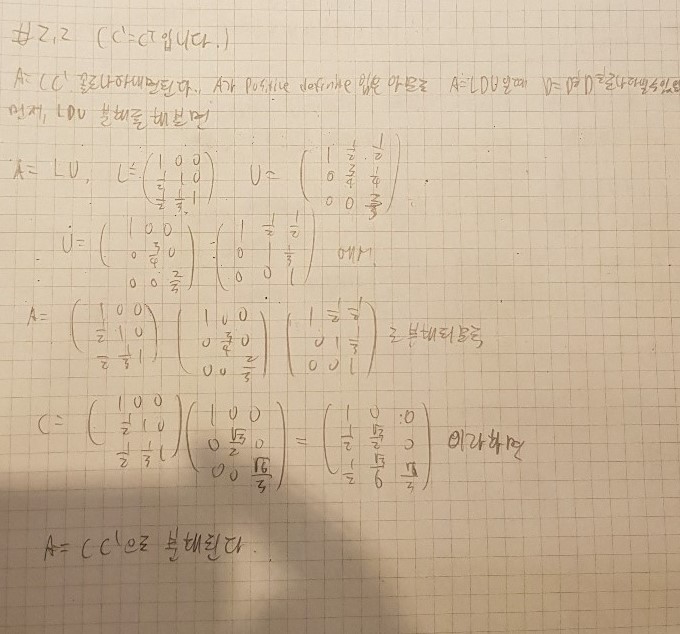 #2,2 (C'=C^T입니다.)
A=CC' 로 나타내면 된다. A가 positive definite 임을 이므로 A=LDU을 때 D=√D√D로 나타낼 수 있
먼저, LDU 분해를 해보면
A = LU, L = (1 0 0 / 1/2 1 0 / 1/2 1/3 1) U = (1 1/2 1/2 / 0 3/4 1/4 / 0 0 2/3)
U = (1 0 0 / 0 3/4 0 / 0 0 2/3) (1 1/2 1/2 / 0 1 1/3 / 0 0 1) 에서
A = (1 0 0 / 1/2 1 0 / 1/2 1/3 1) (1 0 0 / 0 3/4 0 / 0 0 2/3) (1 1/2 1/2 / 0 1 1/3 / 0 0 1) 로 분해되므로
C = (1 0 0 / 1/2 1 0 / 1/2 1/3 1) (1 0 0 / 0 √3/2 0 / 0 0 √6/3) = (1 0 0 / 1/2 √3/2 0 / 1/2 √3/6 √6/3) 이라 하면
A = CC'으로 분해된다.